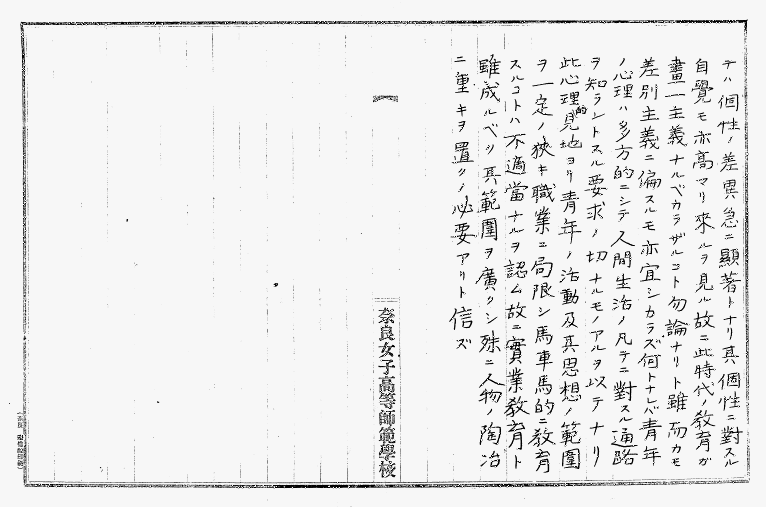 テハ個性ノ差異急ニ顯著トナリ其個性ニ對スル
自覺モ亦高マリ來ルヲ見ル故ニ此時代ノ教育ガ
畫一主義ナルベカラザルコト勿論ナリト雖而カモ
差別主義ニ偏スルモ亦宜シカラズ何トナレバ青年
ノ心理ハ多方的ニシテ人間生活ノ凡テニ對スル通路
ヲ知ラントスル要求ノ切ナルモノアルヲ以テナリ
此心理的見地ヨリ青年ノ活動及其思想ノ範圍
ヲ一定ノ狹キ職業ニ局限シ馬車馬的ニ教育
スルコトハ不適當ナルヲ認ム故ニ實業教育ト
雖成ルベク其範圍ヲ廣クシ殊ニ人物ノ陶冶
ニ重キヲ置クノ必要アリト信ズ
奈良女子高等師範學校